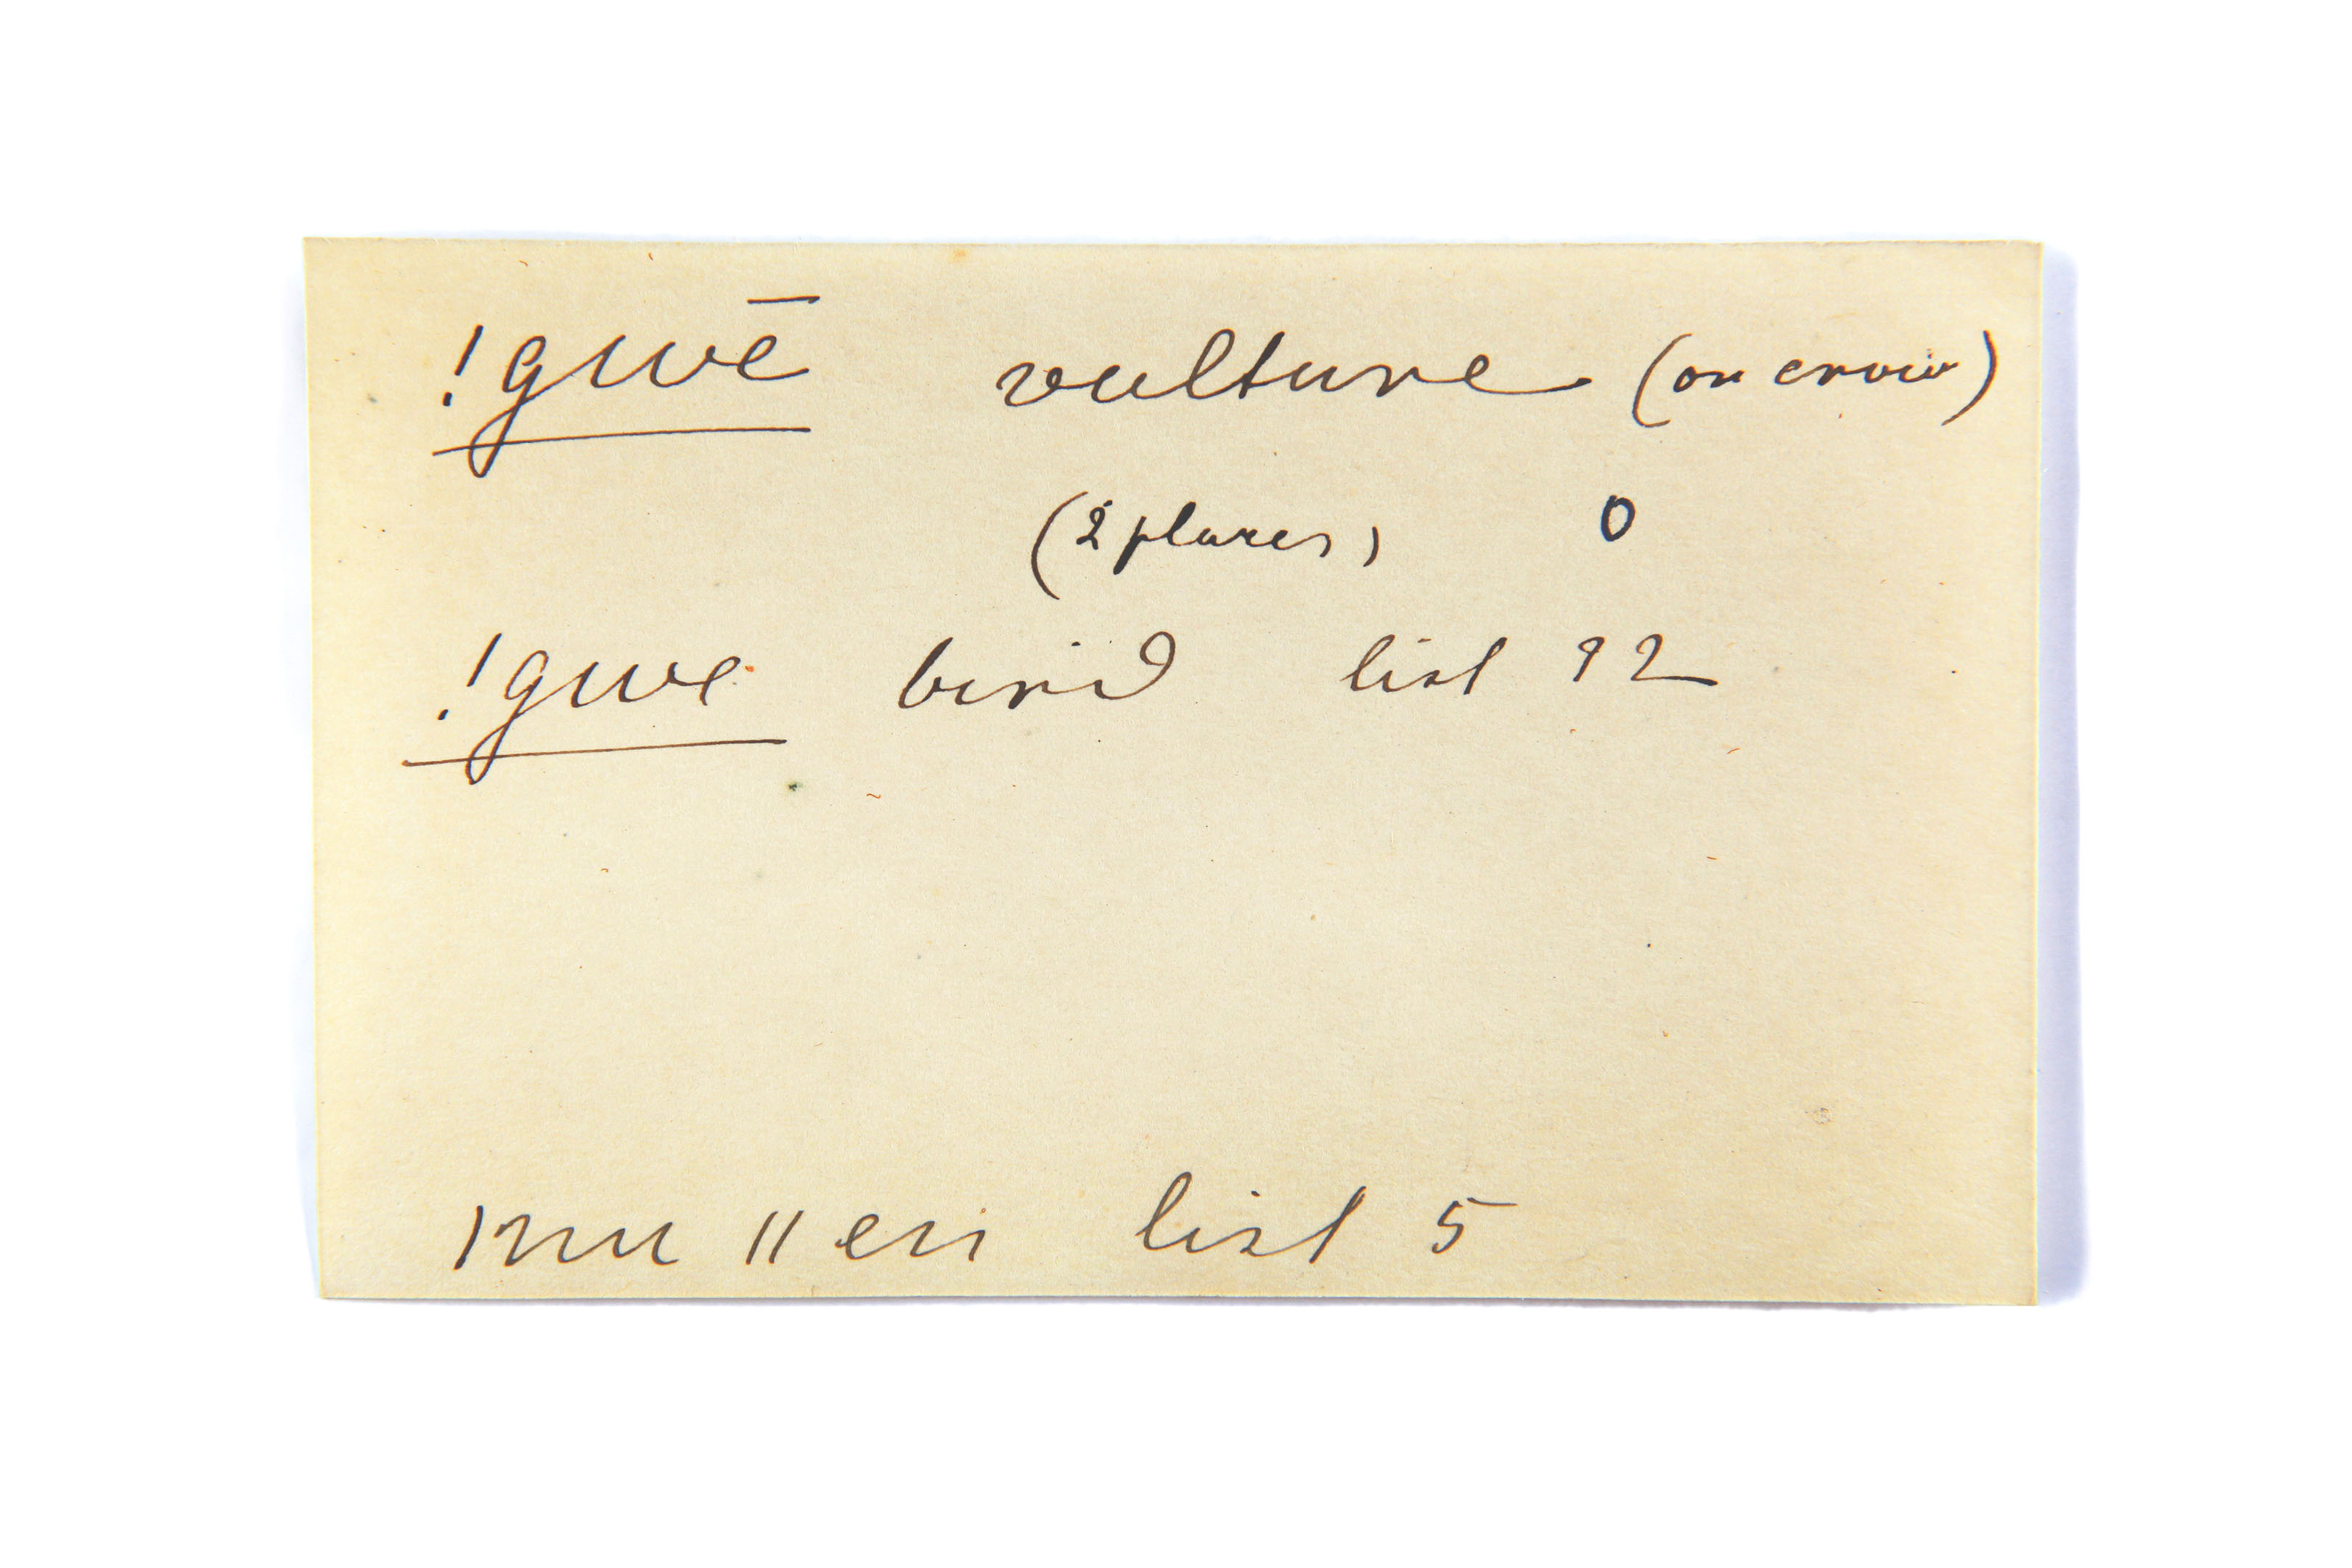 !gwē vulture (or crow)
(2 places) 0
!gwe bird list 92
|nu ||en list 5